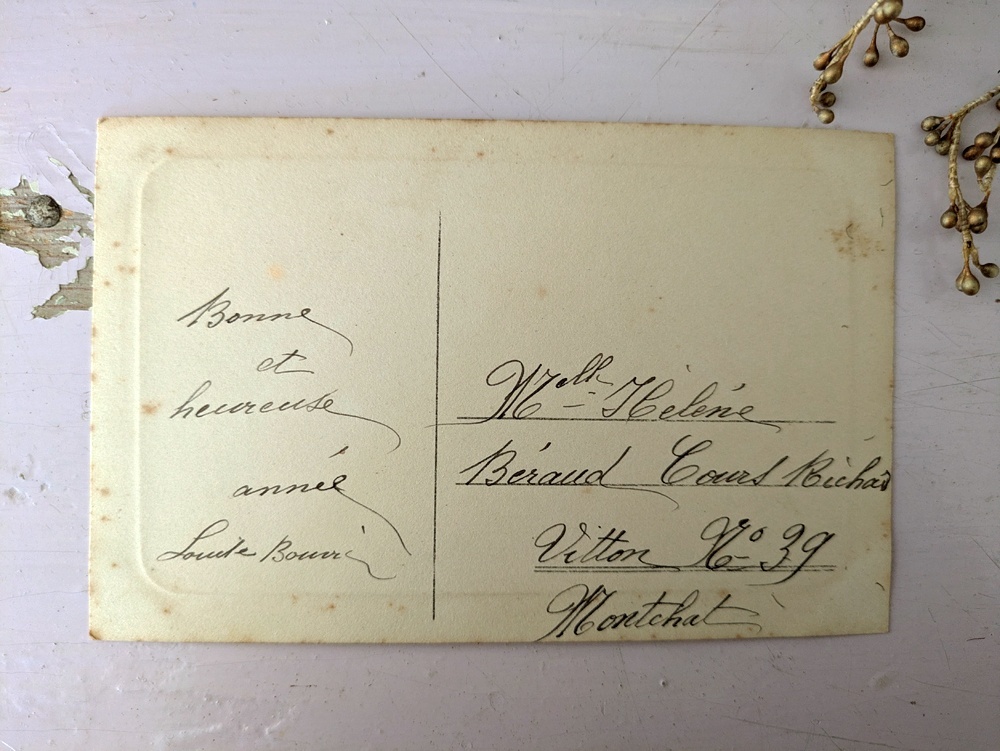 Bonne
et
heureuse
année
Louise
Melle Hélène
Béraud Cours Richar
Vitton No 39
Montchat